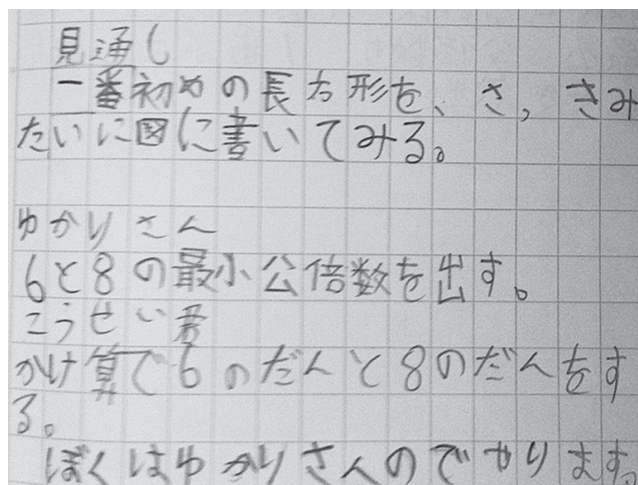 見通し
一番初めの長方形を、さ,きみ
たいに図に書いてみる。
ゆかりさん
6と8の最小公倍数を出す。
こうせい君
かけ算で6のだんと8のだんをす
る。
ぼくはゆかりさんのでやります。